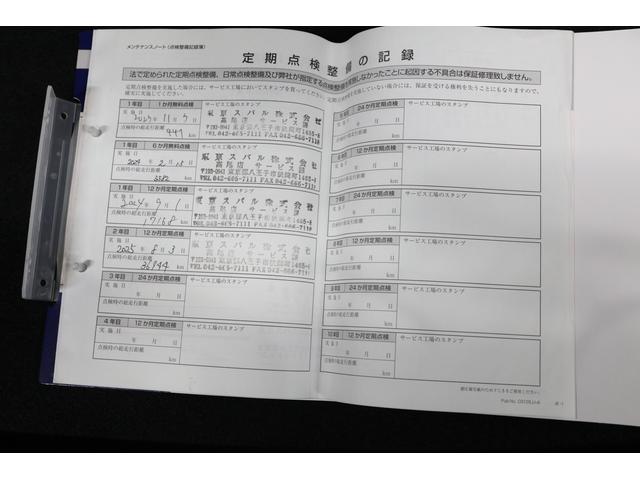 メンテナンスノート（点検整備記録簿）
定期点検整備の記録
法で定められた定期点検整備、日常点検整備及び弊社が指定する点検整備を実施しなかったことに起因する不具合は保証修理致しません。
1年目 1か月無料点検 サービス工場のスタンプ
年 11月 7日
点検時の総走行距離
447 km
東京スバル株式会社
高尾店 サービス課
TEL.042-665-7111 FAX
1年目 6か月無料点検 サービス工場のスタンプ
実施日
2024年 2月 15日
点検時の総走行距離
km
東京スバル株式会社
高尾店 サービス課
〒193-0941 東京都八王子市狭間町1465-8
TEL.042-665-7111 FAX.042-666-7119
1年目 12か月定期点検 サービス工場のスタンプ
2024年 9月 1日
点検時の総走行距離
17168 km
東京スバル株式会社
高尾店 サービス課
〒193-0941 東京都八王子市狭間町1465-8
TEL.042-665-7111 FAX.042-666-7119
2年目 12か月定期点検 サービス工場のスタンプ
実施日
2025年 8月 3日
点検時の総走行距離
36944 km
東京スバル株式会社
高尾店 サービス課
〒193-0941 東京都八王子市狭間町1465-8
TEL.042-665-7111 FAX.042-666-7119
3年目 24か月定期点検 サービス工場のスタンプ
実施日
年 月 日
点検時の総走行距離
km
4年目 12か月定期点検 サービス工場のスタンプ
実施日
年 月 日
点検時の総走行距離
km
24か月定期点検 サービス工場のスタンプ
年 月 日
点検時の総走行距離
km
12か月定期点検 サービス工場のスタンプ
年 月 日
点検時の総走行距離
km
7年目 24か月定期点検 サービス工場のスタンプ
年 月 日
点検時の総走行距離
km
8年目 12か月定期点検 サービス工場のスタンプ
年 月 日
点検時の総走行距離
km
9年目 24か月定期点検 サービス工場のスタンプ
年 月 日
点検時の総走行距離
km
10年目 12か月定期点検 サービス工場のスタンプ
年 月 日
点検時の総走行距離
km